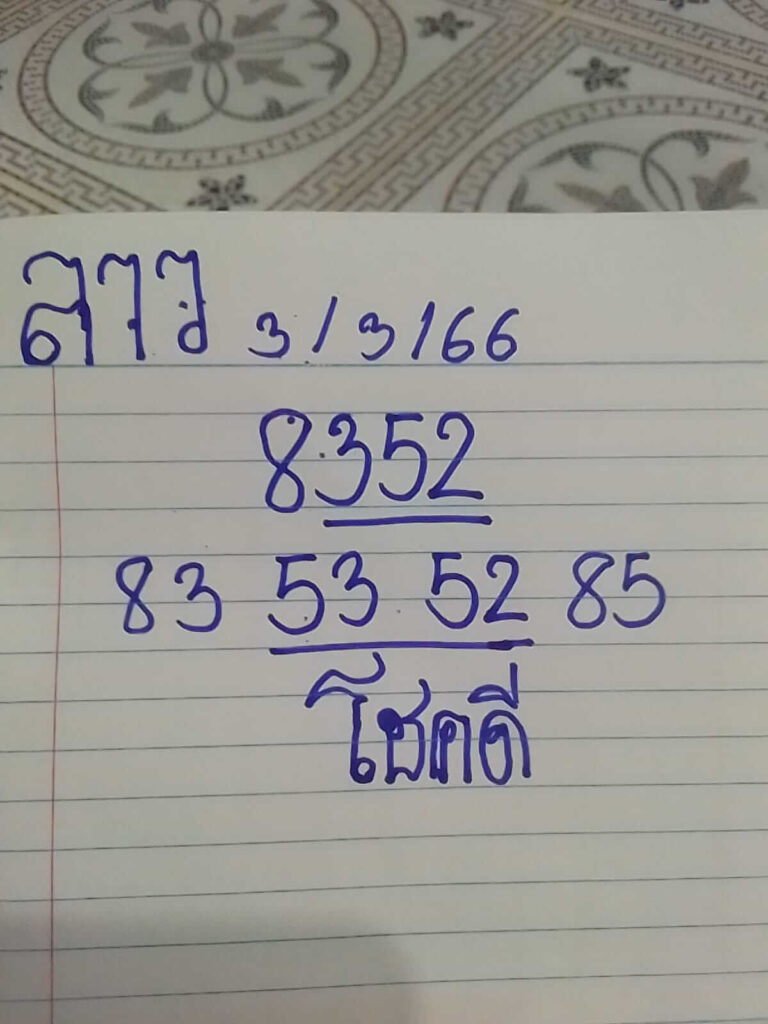 ลาว 3/3/66
8352
83 53 52 85
โชคดี